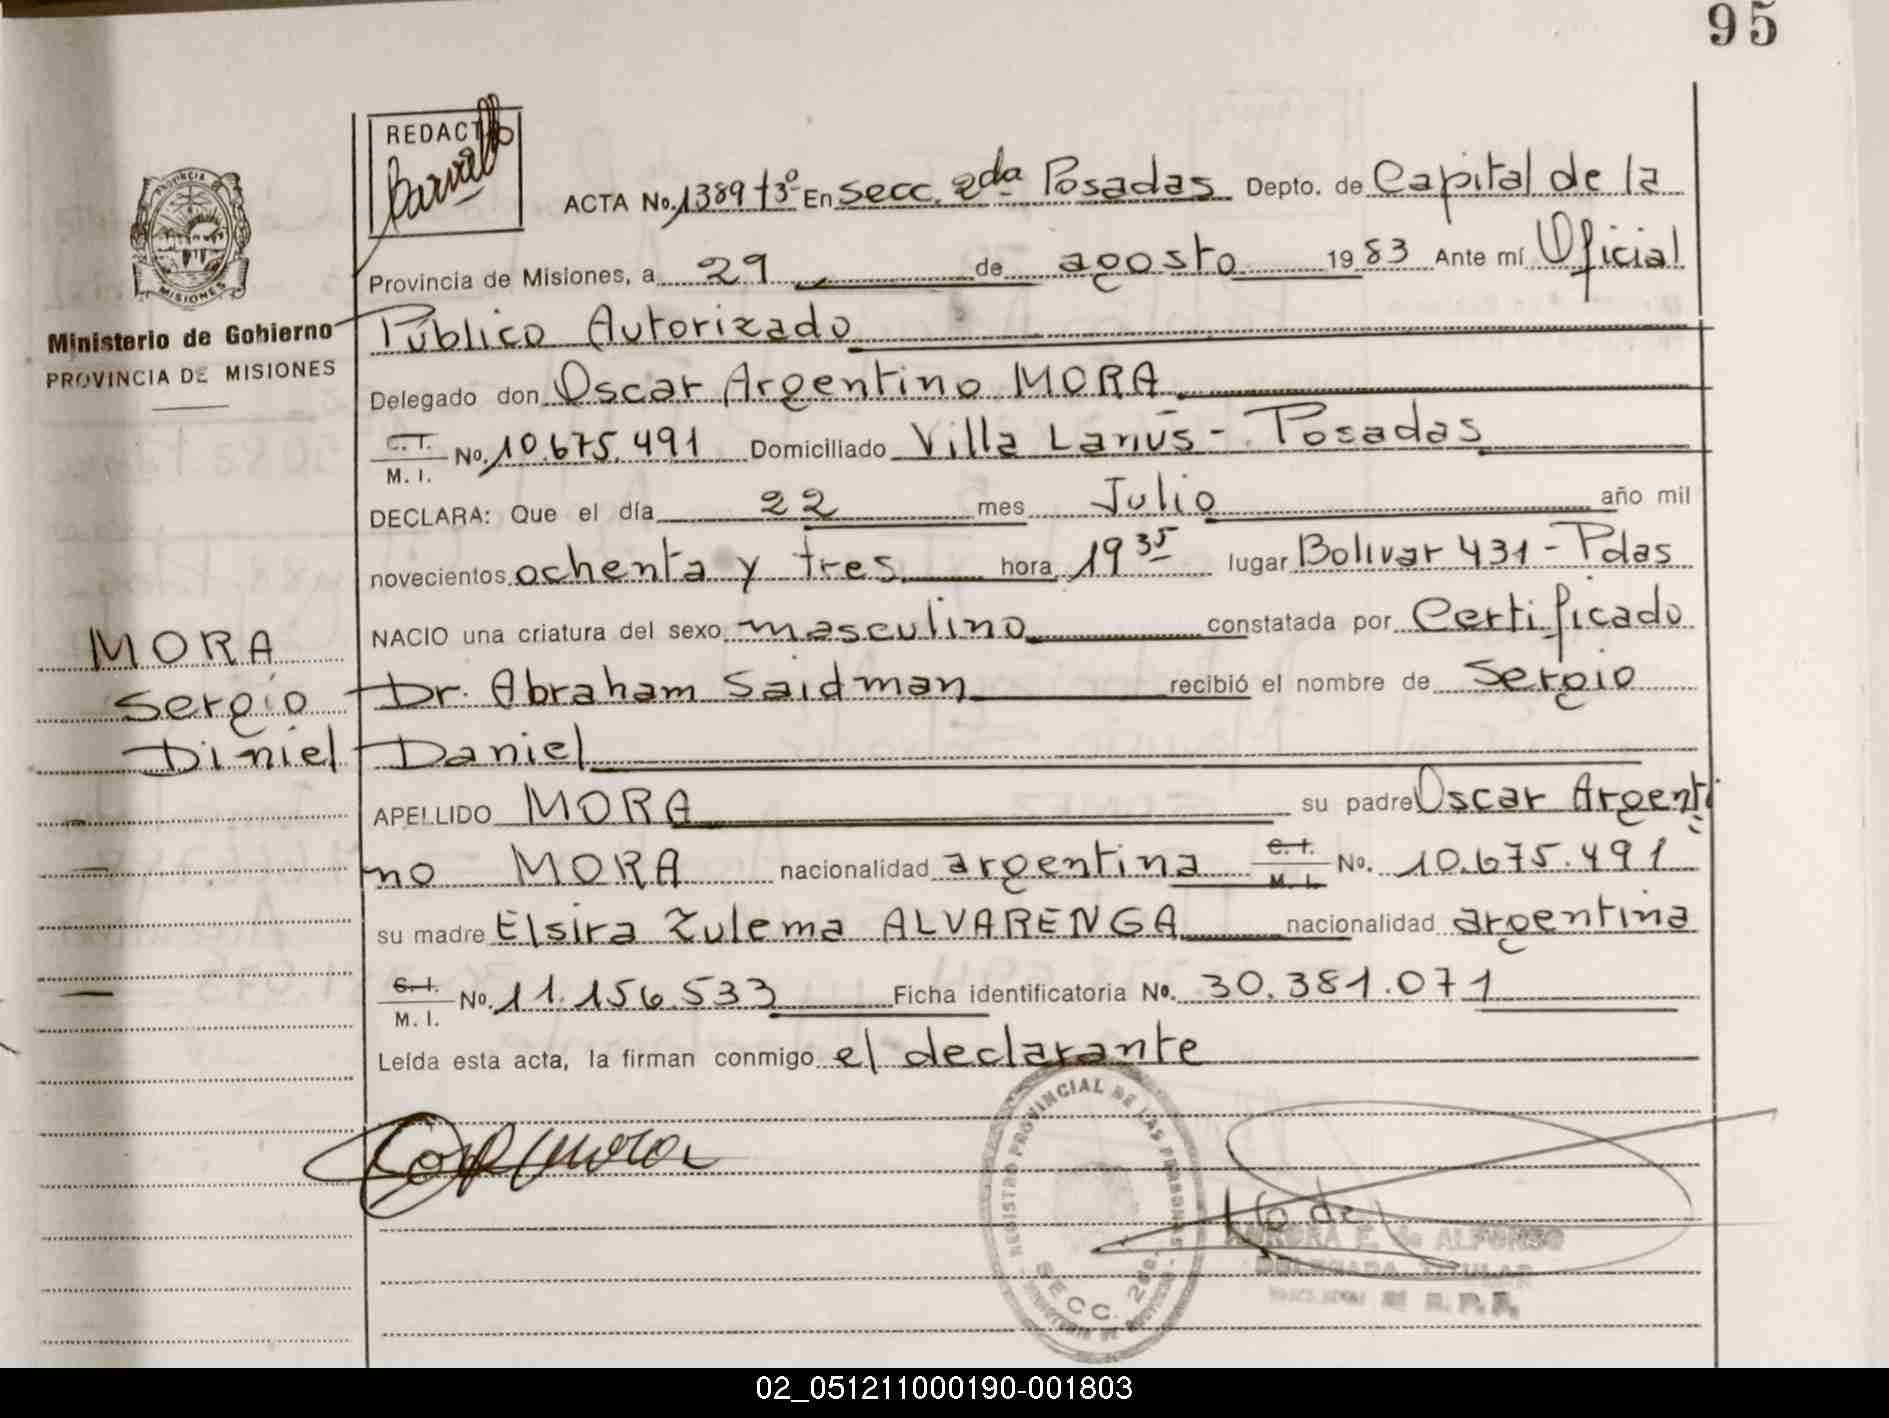 95
REDACTO
Carvallo
PROVINCIA
MISIONES
ACTA No. 1389 t3º En Secc. 2da Posadas Depto. de Capital de la
Provincia de Misiones, a 29 de agosto 1983 Ante mí Oficial
Ministerio de Gobierno
PROVINCIA DE MISIONES
Público Autorizado
Delegado don Oscar Argentino MORA
C.I. M. I. No. 10.675.491 Domiciliado Villa Lanús - Posadas
DECLARA: Que el día 22 mes Julio año mil
novecientos ochenta y tres hora 19 35 lugar Bolivar 431 - Pdas
NACIO una criatura del sexo masculino constatada por Certificado
Dr. Abraham Saidman recibió el nombre de Sergio
Daniel
MORA
Sergio
Diniel
APELLIDO MORA su padre Oscar Argenti
no MORA nacionalidad argentina C. I. M. I. No. 10.675.491
su madre Elsira Zulema ALVARENGA nacionalidad argentina
C. I. M. I. No. 11.156.533 Ficha identificatoria No. 30.381.071
Leída esta acta, la firman conmigo el declarante
REGISTRO PROVINCIAL DE LAS PERSONAS
SECC. 2da.
AURORA E. de ALFONSO
DELEGADA TITULAR
R. P. P.
02_051211000190-001803